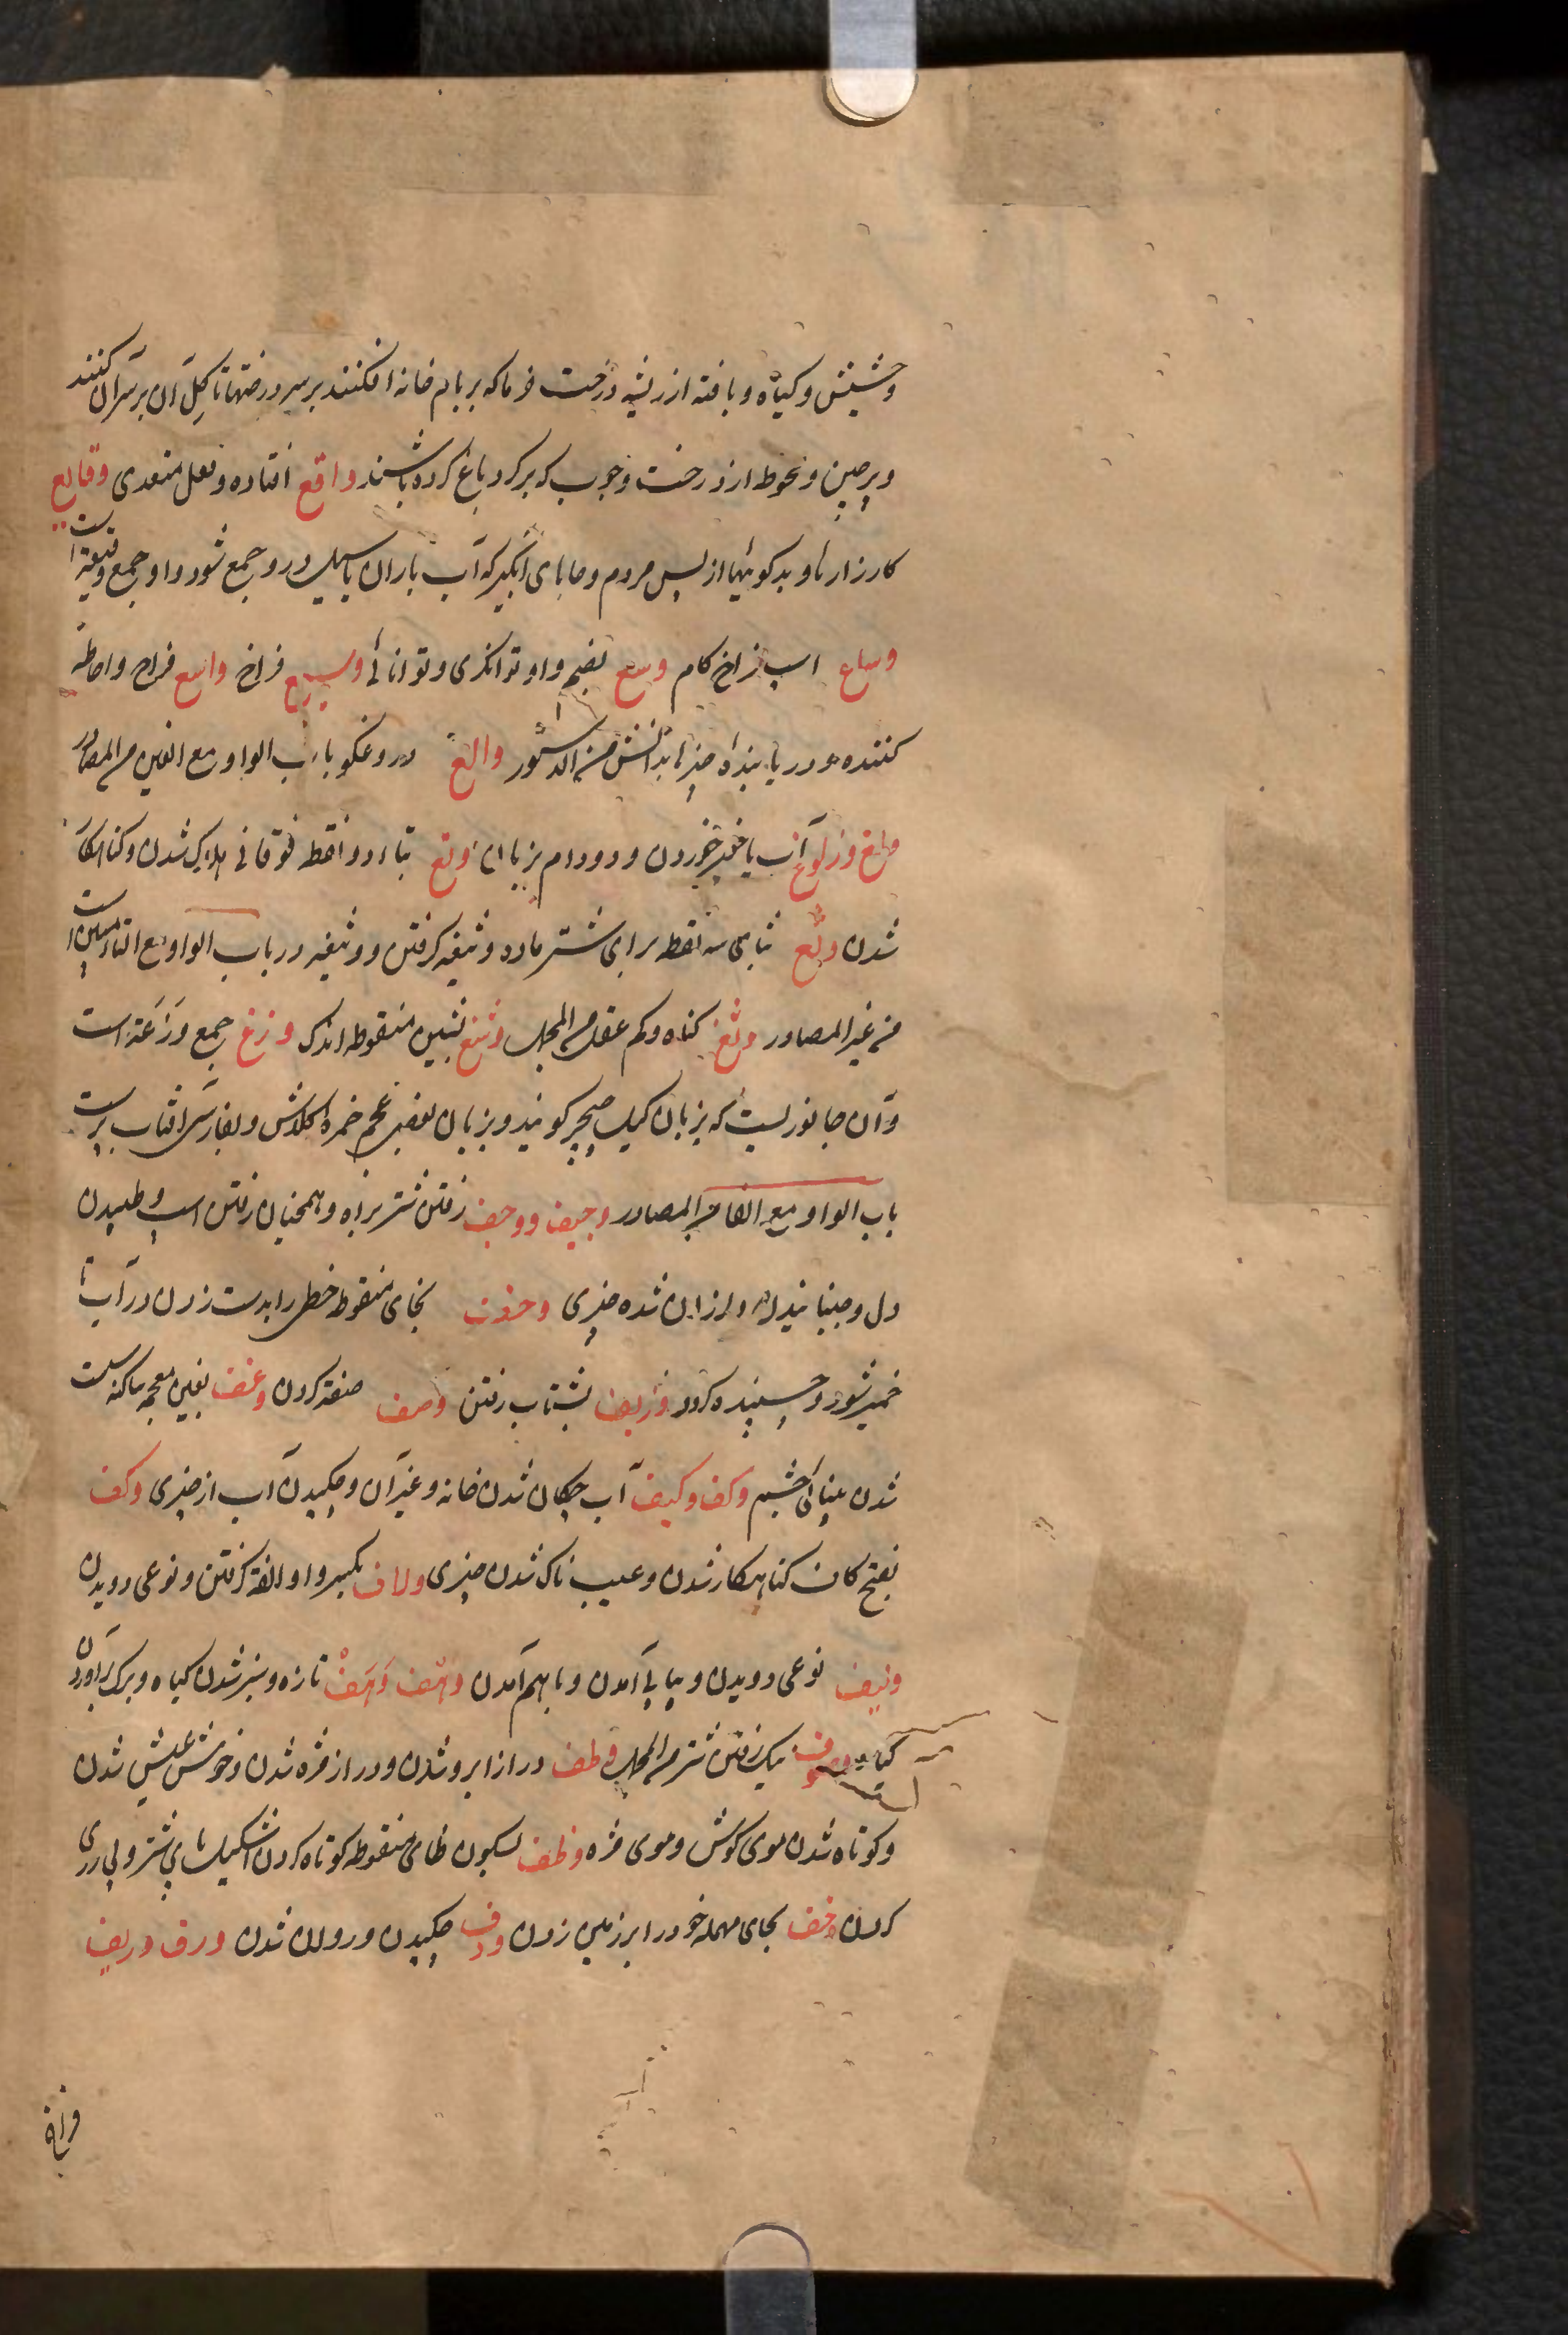 وحشیش و کیاه و بافته از ریشه درخت خرما که بر بام خانه افکنند بر سر درختها تا کِل آن بر سر آن کنند
وپرچین و نحوط از درخت و چوب که بر کرد باغ کرده باشند واقع افتاده و فعل متعدی وقایع
کارزارها و بدکوئیها از پس مردم و جاهای آبگیر که آب باران یا سیل درو جمع شود و او جمع وقیعة است
وساع اسپ فراخ کام وسع بضم واو توانکری و توانائی وسیع فراخ واسع فراخ و احاطه
کننده و دریابنده چیزها بدانش من الدستور والغ دروغکو باب الواو مع الغین من المصادر
ولغ و زلوغ آب یا غیر خوردن دد و دام بزبان وتغ بتاء دو نقطه فوقانی هلاک شدن و کناهکار
شدن وثغ بثای سه نقطه برای شتر ماده وثیغه کرفتن و وثیغه در باب الواو مع التا مبین است
من غیر المصادر وتغ کناه و کم عقلی من المجمل وشغ بشین منقوطه اندک وزغ جمع وَزَغَة است
وآن جانوریست که بزبان کیل چیچر کویند و بزبان بعضی عجم خمره کلاش و بفارسی افتاب پرست
باب الواو مع الفا من المصادر وجیف ووجف رفتن شتر براه و همچنان رفتن اسپ و طپیدن
دل و جنبانیدن و لرزان شده چیزی وخف بخای منقوطه خطمی را بدست زدن در آب تا
خمیر شود و چسپنده کردد وزیف بشتاب رفتن وصف صفة کردن وغف بغین معجمه ساکنه سست
شدن بینائی چشم وکف وکیف آب چکان شدن خانه و غیر آن و چکیدن آب از چیزی وکف
بفتح کاف کناهکار شدن و عیب ناک شدن چیزی ولاف بکسر واو الفة کرفتن و نوعی دویدن
ولیف نوعی دویدن و پیاپی آمدن و باهم آمدن وهف وَهَفْ تازه و سبز شدن کیاه و برک برآوردن
کیاه نیک رفتن شتر من المجمل وطف دراز ابرو شدن و دراز مژه شدن و خوش عیش شدن
و کوتاه شدن موی کوش و موی مژه وظف بسکون ظای منقوطه کوتاه کردن اشکیل پای شتر و پی روی
کردن وحف بحای مهمله خود را بر زمین زدن ودف چکیدن و روان شدن ورق وریف
فراخ